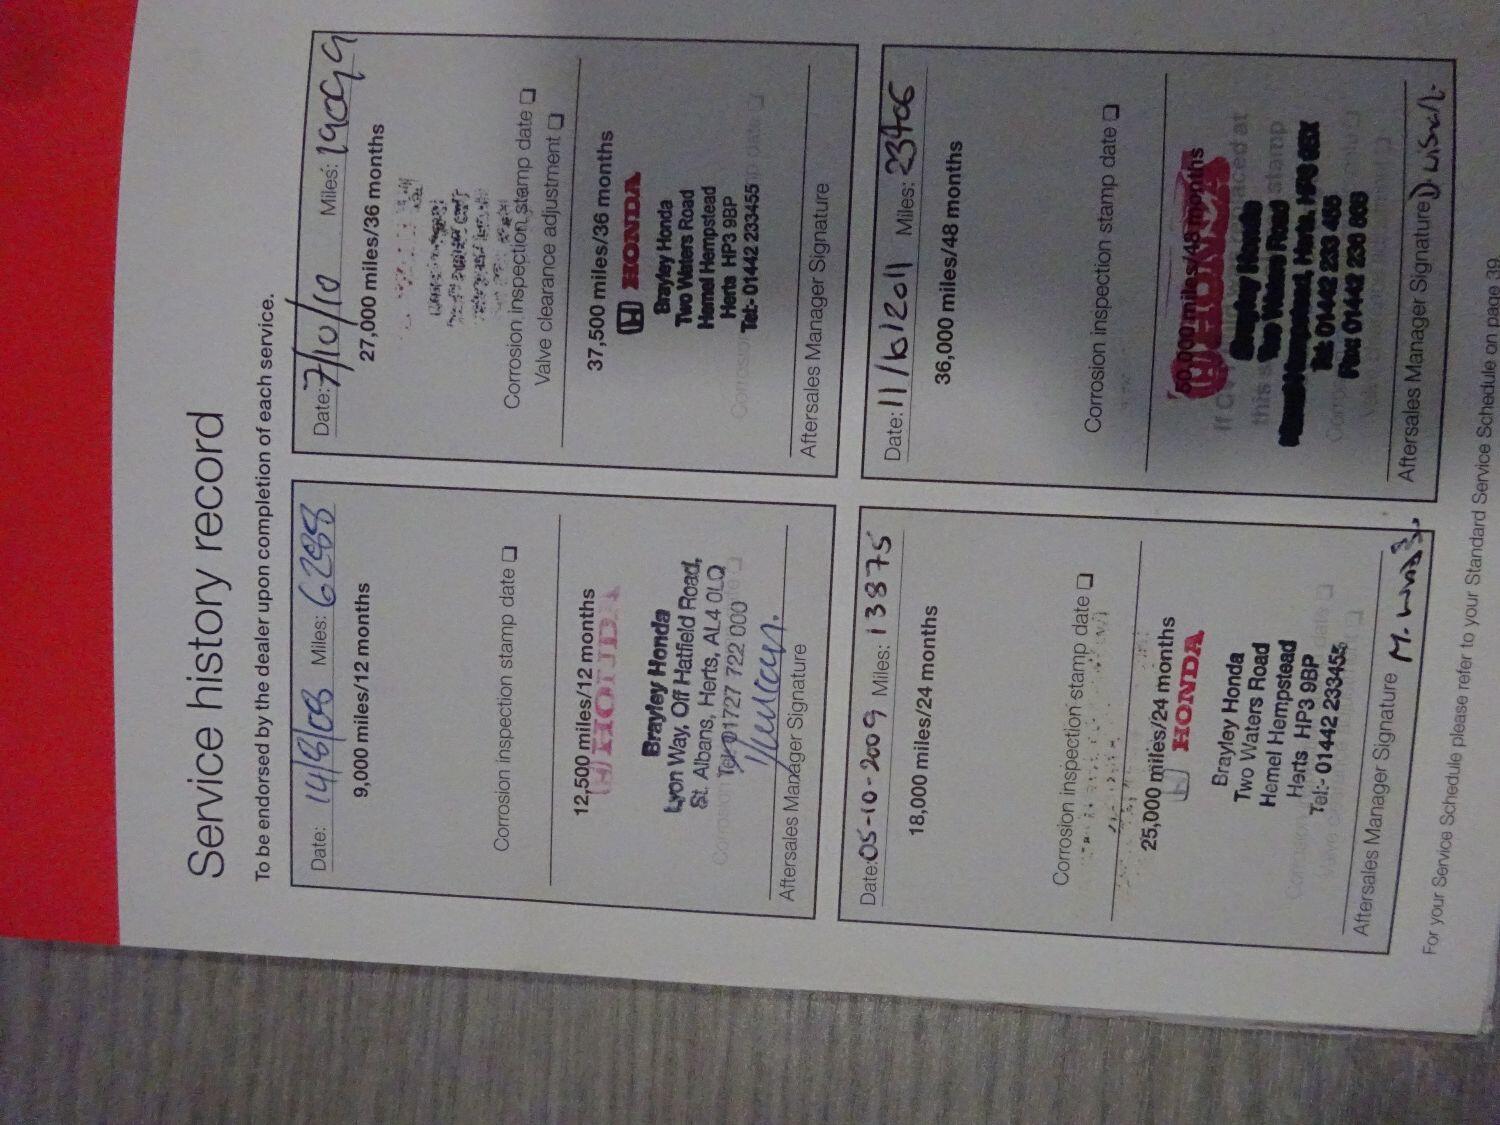 Service history record
To be endorsed by the dealer upon completion of each service.
Date: 14/8/08 Miles: 6288
9,000 miles/12 months
Corrosion inspection stamp date
12,500 miles/12 months
HONDA
Brayley Honda
Lyon Way, Off Hatfield Road,
St. Albans, Herts, AL4 0LQ
Tel: 01727 722 000
Aftersales Manager Signature
Date: 7/10/10 Miles: 19099
27,000 miles/36 months
Corrosion inspection stamp date
Valve clearance adjustment
37,500 miles/36 months
HONDA
Brayley Honda
Two Waters Road
Hemel Hempstead
Herts HP3 9BP
Tel:- 01442 233455
Aftersales Manager Signature
Date: 05-10-2009 Miles: 13875
18,000 miles/24 months
Corrosion inspection stamp date
25,000 miles/24 months
HONDA
Brayley Honda
Two Waters Road
Hemel Hempstead
Herts HP3 9BP
Tel:- 01442 233455
Aftersales Manager Signature M.
Date: 11/6/2011 Miles: 23406
36,000 miles/48 months
Corrosion inspection stamp date
50,000 miles/48 months
HONDA
Brayley Honda
Two Waters Road
Hemel Hempstead, Herts.
Tel: 01442 233 455
Fax: 01442 230
Aftersales Manager Signature
For your Service Schedule please refer to your Standard Service Schedule on page 39.